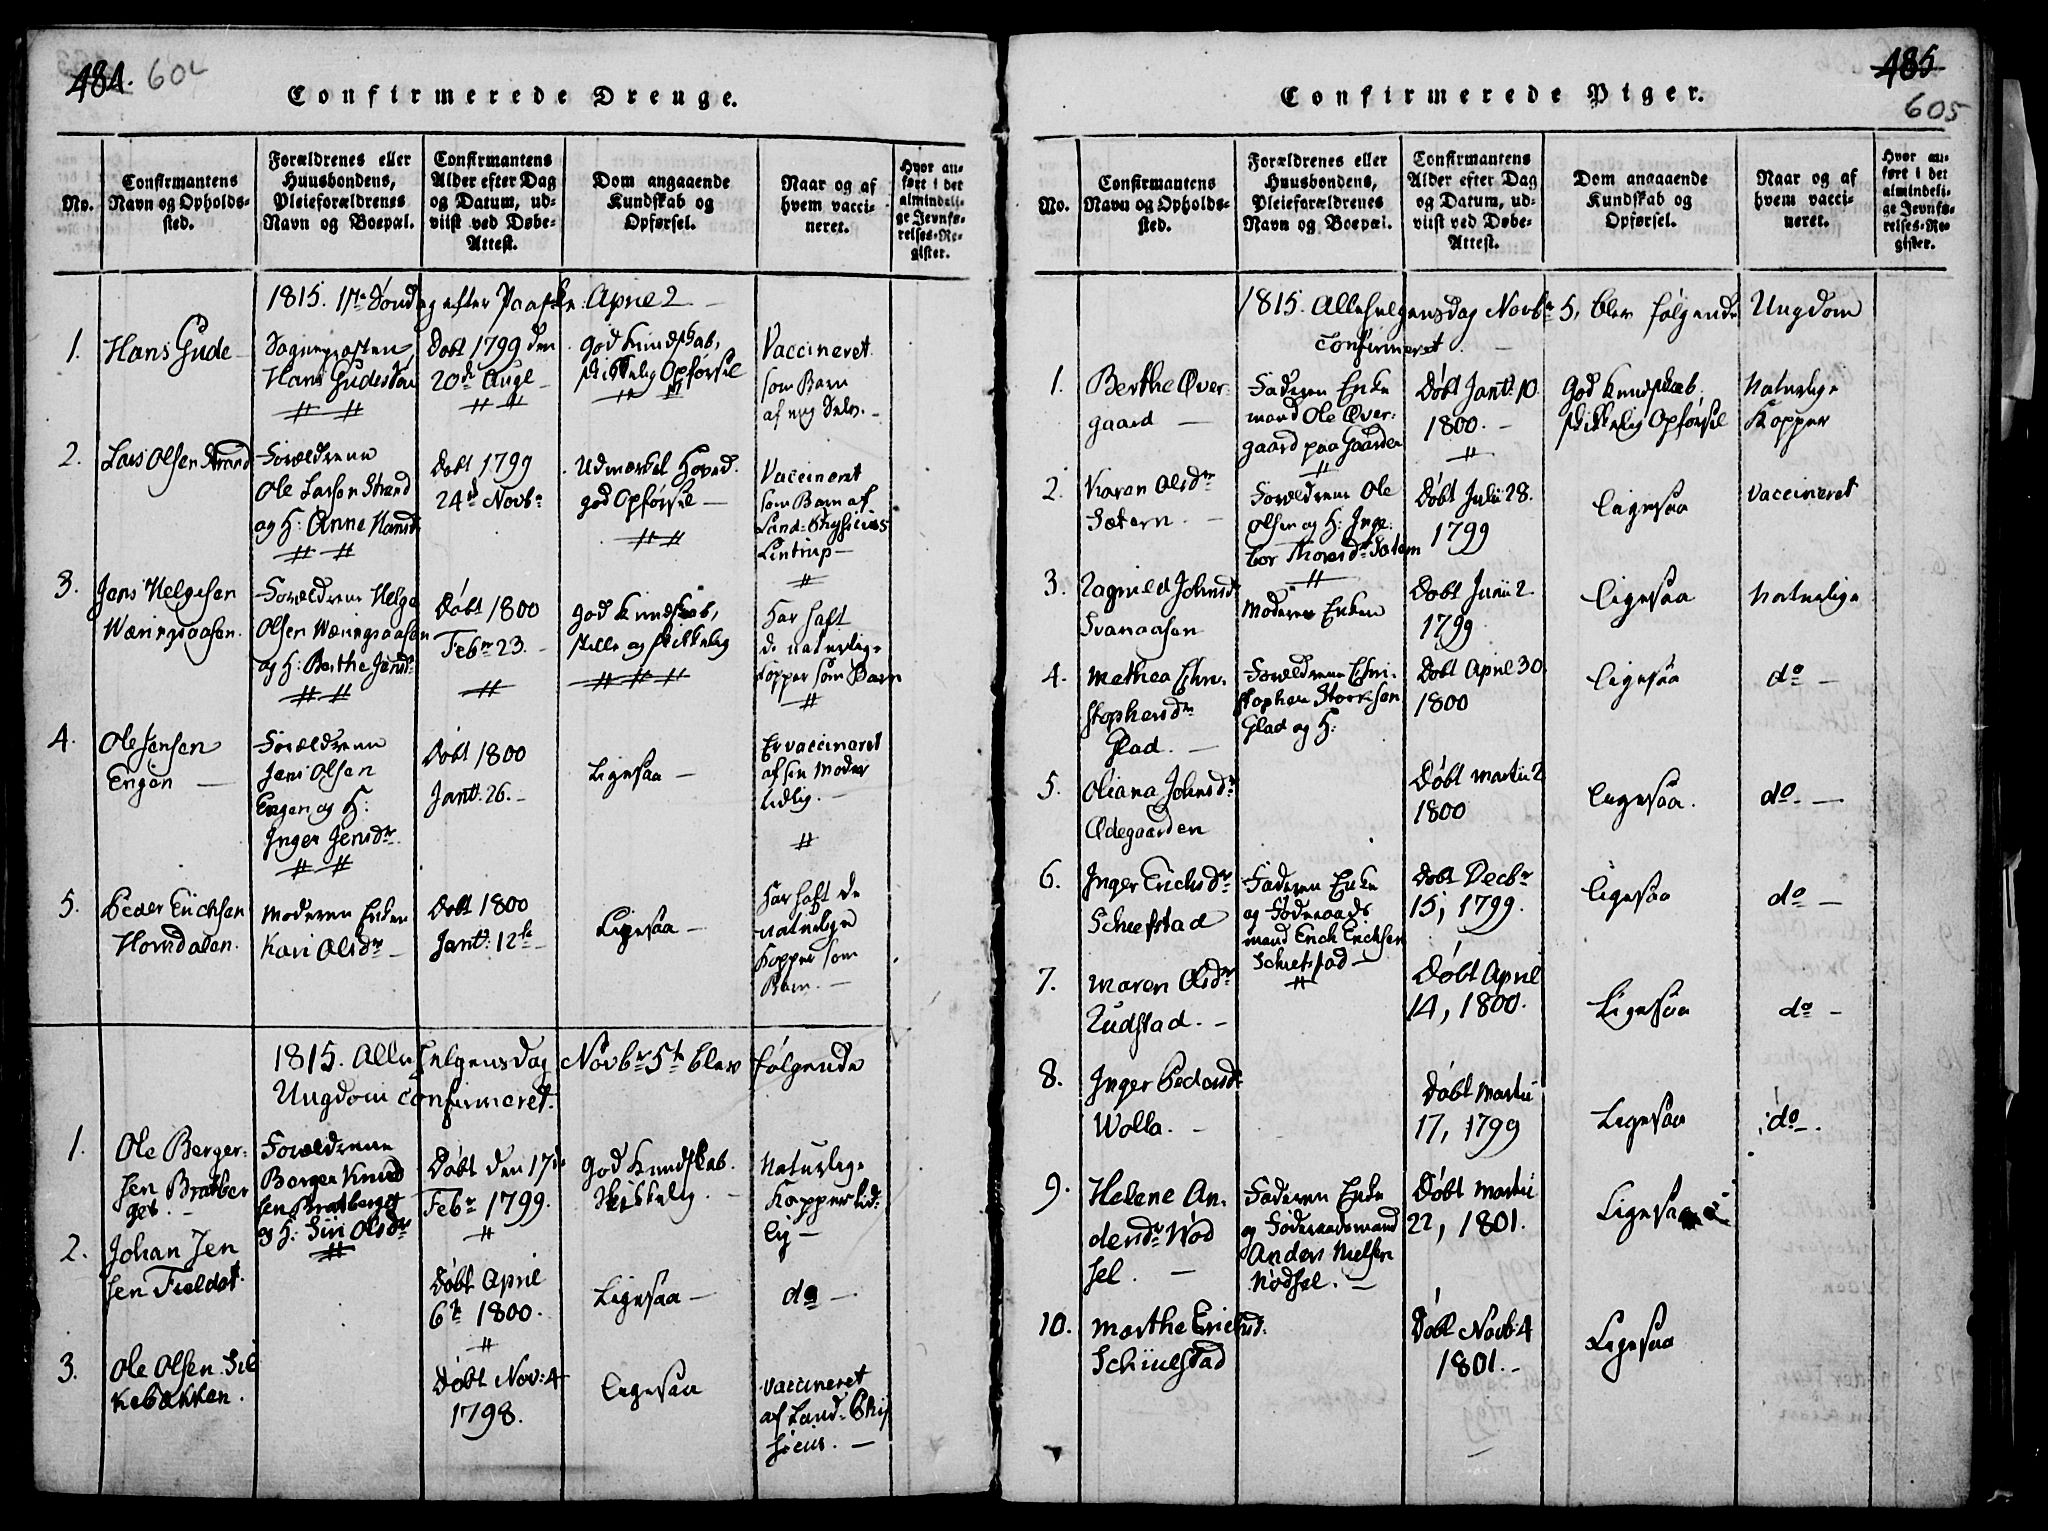 484. 604
Confirmerede Drenge.
No.
Confirmantens
Navn og Opholds-
sted.
Forældrenes eller
Huusbondens,
Pleieforældrenes
Navn og Boepæl.
Confirmantens
Alder efter Dag
og Datum, ud-
viist ved Døbe-
Attest.
Dom angaaende
Kundskab og
Opførsel.
Naar og af
hvem vacci-
neret.
Hvor an-
ført i det
almindeli-
ge Jevnfø-
relses-Re-
gister.
1815. 1ste Søndag efter Paaske. April 2
1.
Hans Gude
Sogneprosten
Hans Gudes Søn
Døbt 1799 den
20de Aug
God Kundskab,
skikkelig Opførsel
Vaccineret
som Barn
af mig Selv.
2.
Lars Olsen Strand
Forældrene
Ole Larsen Strand
og H: Anne Hansdr
Døbt 1799
24de Novbr
Udmærket Hoved.
god Opførsel
Vaccineret
som Barn af
Land-Physicus
Lintrup
3.
Jens Helgesen
Wæringsaasen.
Forældrene Helge
Olsen Wæringsaasen
og H: Berthe Jensdr
Døbt 1800
Febr 23.
God Kundskab,
stille og skikkelig
Har haft
de naturlige
Kopper som Barn
4.
Ole Jensen
Engen
Forældrene
Jens Olsen
Engen og H:
Inger Jensdr
Døbt 1800
Janr. 26.
Ligesaa
Er vaccineret
af sin Moder
5.
Peder Erichsen
Horndalen.
Moderen Enken
Kari Olsdr
Døbt 1800
Janr. 12te
Ligesaa
Har haft de
naturlige
Kopper som
Barn.
1815. Allehelgensdag Novbr 5te blev følgende
Ungdom confirmeret.
1.
Ole Berger-
sen Bratber
get.
Forældrene
Berger Knud
sen Bratberget
og H: Siri Olsdr
Døbt den 17de
Febr 1799.
God Kundskab.
Skikkelig.
Naturlige
Kopper
2.
Johan Jen
sen Fieldet.
Døbt April
6te 1800.
Ligesaa
do
3.
Ole Olsen Sil
kebækken.
Døbt Nov: 4
1798.
Ligesaa
vaccineret
af Land-Phy
sicus.
485
605
Confirmerede Piger.
No.
Confirmantens
Navn og Opholds-
sted.
Forældrenes eller
Huusbondens,
Pleieforældrenes
Navn og Boepæl.
Confirmantens
Alder efter Dag
og Datum, ud-
viist ved Døbe-
Attest.
Dom angaaende
Kundskab og
Opførsel.
Naar og af
hvem vacci-
neret.
Hvor an-
ført i det
almindeli-
ge Jevnfø-
relses-Re-
gister.
1815. Allehelgensdag Novbr 5, blev følgende Ungdom
confirmeret.
1.
Berthe Øver-
gaard
Faderen Enke
mand Ole Øver-
gaard paa Gaarden
Døbt Janr. 10.
1800.
God Kundskab.
skikkelig Opførsel
Naturlige
Kopper
2.
Karen Olsdr
Sætern.
Forældrene Ole
Olsen og H: Inge-
bor Thoresdr Sætern
Døbt Julii 28.
1799
Ligesaa
vaccineret
3.
Ragnild Johnsdr
Svenaasen
Moderen Enken
Døbt Junii 2
1799
Ligesaa
Naturlige
4.
Mathea Chri-
stophersdr
Glad.
Forældrene Chri-
stopher Storksen
Glad og H:
Døbt April 30
1800
Ligesaa
do
5.
Oliana Johnsdr
Ødegaarden
Døbt Martii 2
1800
Ligesaa.
do.
6.
Inger Erichsdr
Schiefstad
Faderen Enke
og Føderaads
mand Erich Erichsen
Schiefstad
Døbt Decbr
15, 1799.
Ligesaa
do
7.
Maren Olsdr
Rudstad.
Døbt April
14, 1800.
Ligesaa
do
8.
Inger Pedersdr
Wolla.
Døbt Martii
17, 1799
Ligesaa
do.
9.
Helene An-
dersdr Nød
sel.
Faderen Enke
og Føderaadsmand
Anders Nielsen
Nødsel.
Døbt Martii
22, 1801.
Ligesaa
10.
Marthe Erichsd:
Schiulstad
Døbt Novb: 4
1801.
Ligesaa